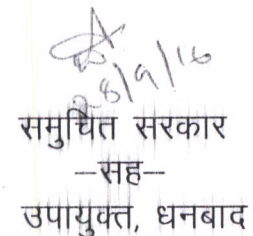 28/9/16
समुचित सरकार
–सह–
उपायुक्त, धनबाद